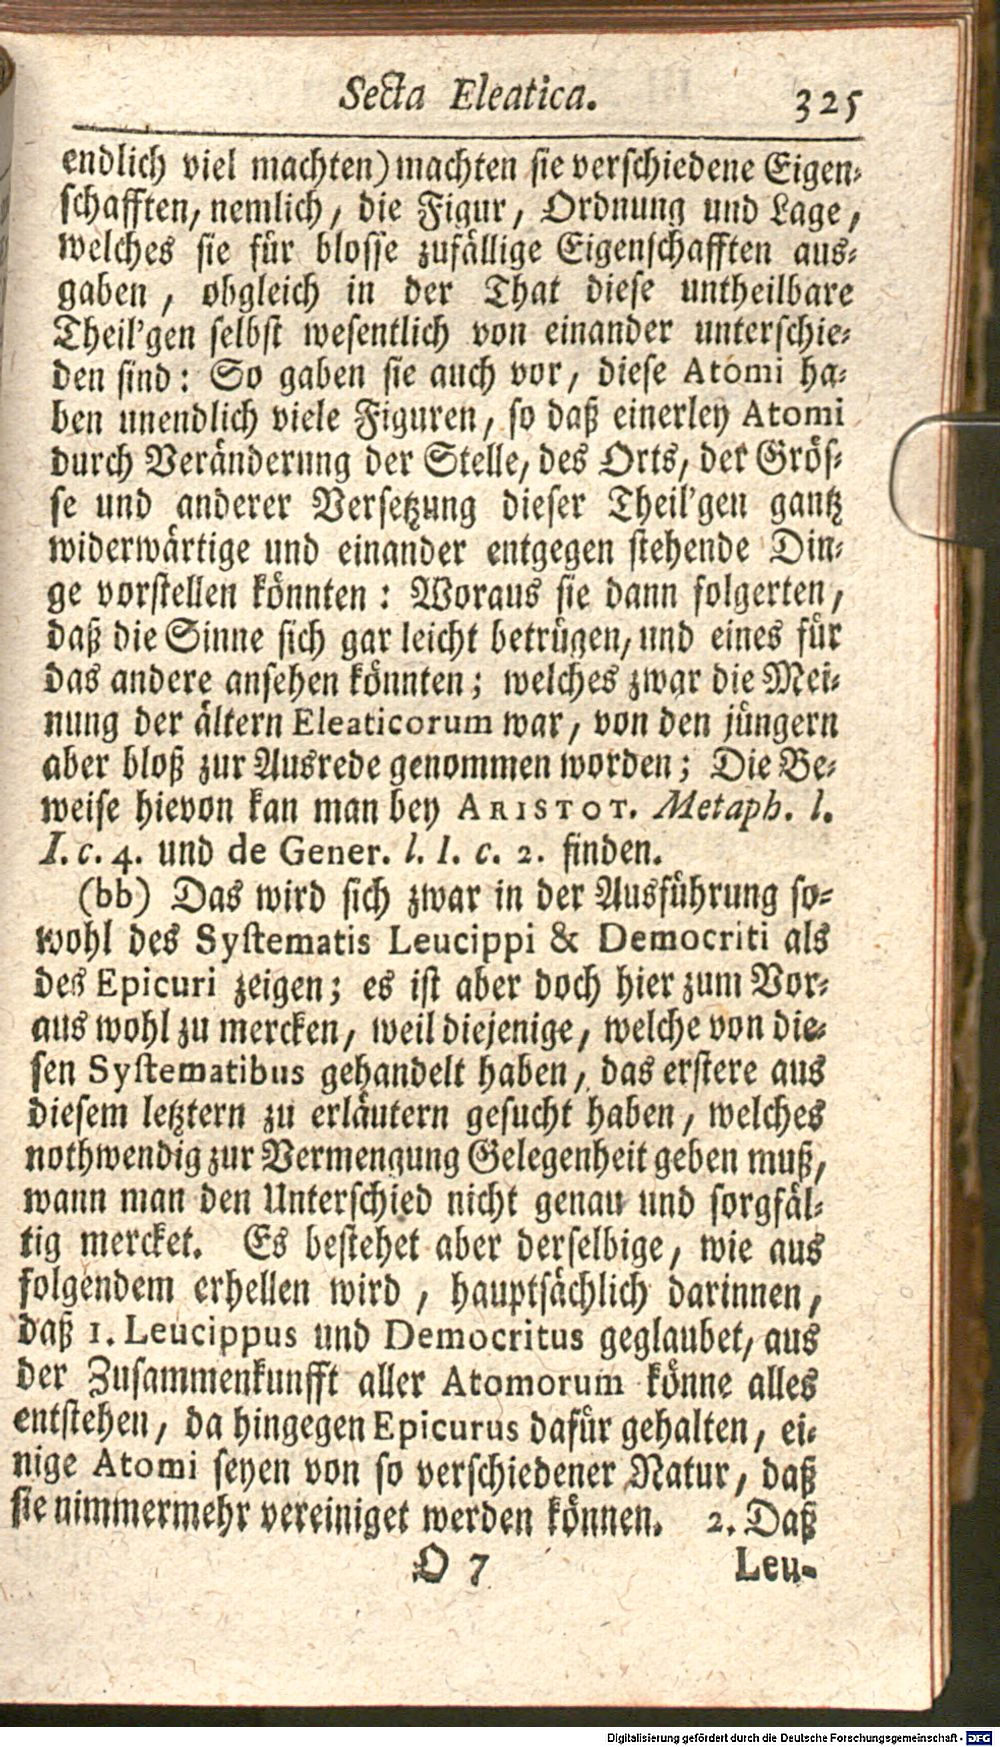 Secta Eleatica. 325
endlich viel machten) machten sie verschiedene Eigen-
schafften, nemlich, die Figur, Ordnung und Lage,
welches sie für blosse zufällige Eigenschafften aus-
gaben, obgleich in der That diese untheilbare
Theil'gen selbst wesentlich von einander unterschie-
den sind: So gaben sie auch vor, diese Atomi ha-
ben unendlich viele Figuren, so daß einerley Atomi
durch Veränderung der Stelle, des Orts, der Grös-
se und anderer Versetzung dieser Theil'gen gantz
widerwärtige und einander entgegen stehende Din-
ge vorstellen könnten: Woraus sie dann folgerten,
daß die Sinne sich gar leicht betrügen, und eines für
das andere ansehen könnten; welches zwar die Mei-
nung der ältern Eleaticorum war, von den jüngern
aber bloß zur Ausrede genommen worden; Die Be-
weise hievon kan man bey ARISTOT. Metaph. l.
I. c. 4. und de Gener. l. I. c. 2. finden.
(bb) Das wird sich zwar in der Ausführung so-
wohl des Systematis Leucippi & Democriti als
des Epicuri zeigen; es ist aber doch hier zum Vor-
aus wohl zu mercken, weil diejenige, welche von die-
sen Systematibus gehandelt haben, das erstere aus
diesem letztern zu erläutern gesucht haben, welches
nothwendig zur Vermengung Gelegenheit geben muß,
wann man den Unterschied nicht genau und sorgfäl-
tig mercket. Es bestehet aber derselbige, wie aus
folgendem erhellen wird, hauptsächlich darinnen,
daß 1. Leucippus und Democritus geglaubet, aus
der Zusammenkunfft aller Atomorum könne alles
entstehen, da hingegen Epicurus dafür gehalten, ei-
nige Atomi seyen von so verschiedener Natur, daß
sie nimmermehr vereiniget werden können. 2. Daß
O 7 Leu-
Digitalisierung gefördert durch die Deutsche Forschungsgemeinschaft - DFG